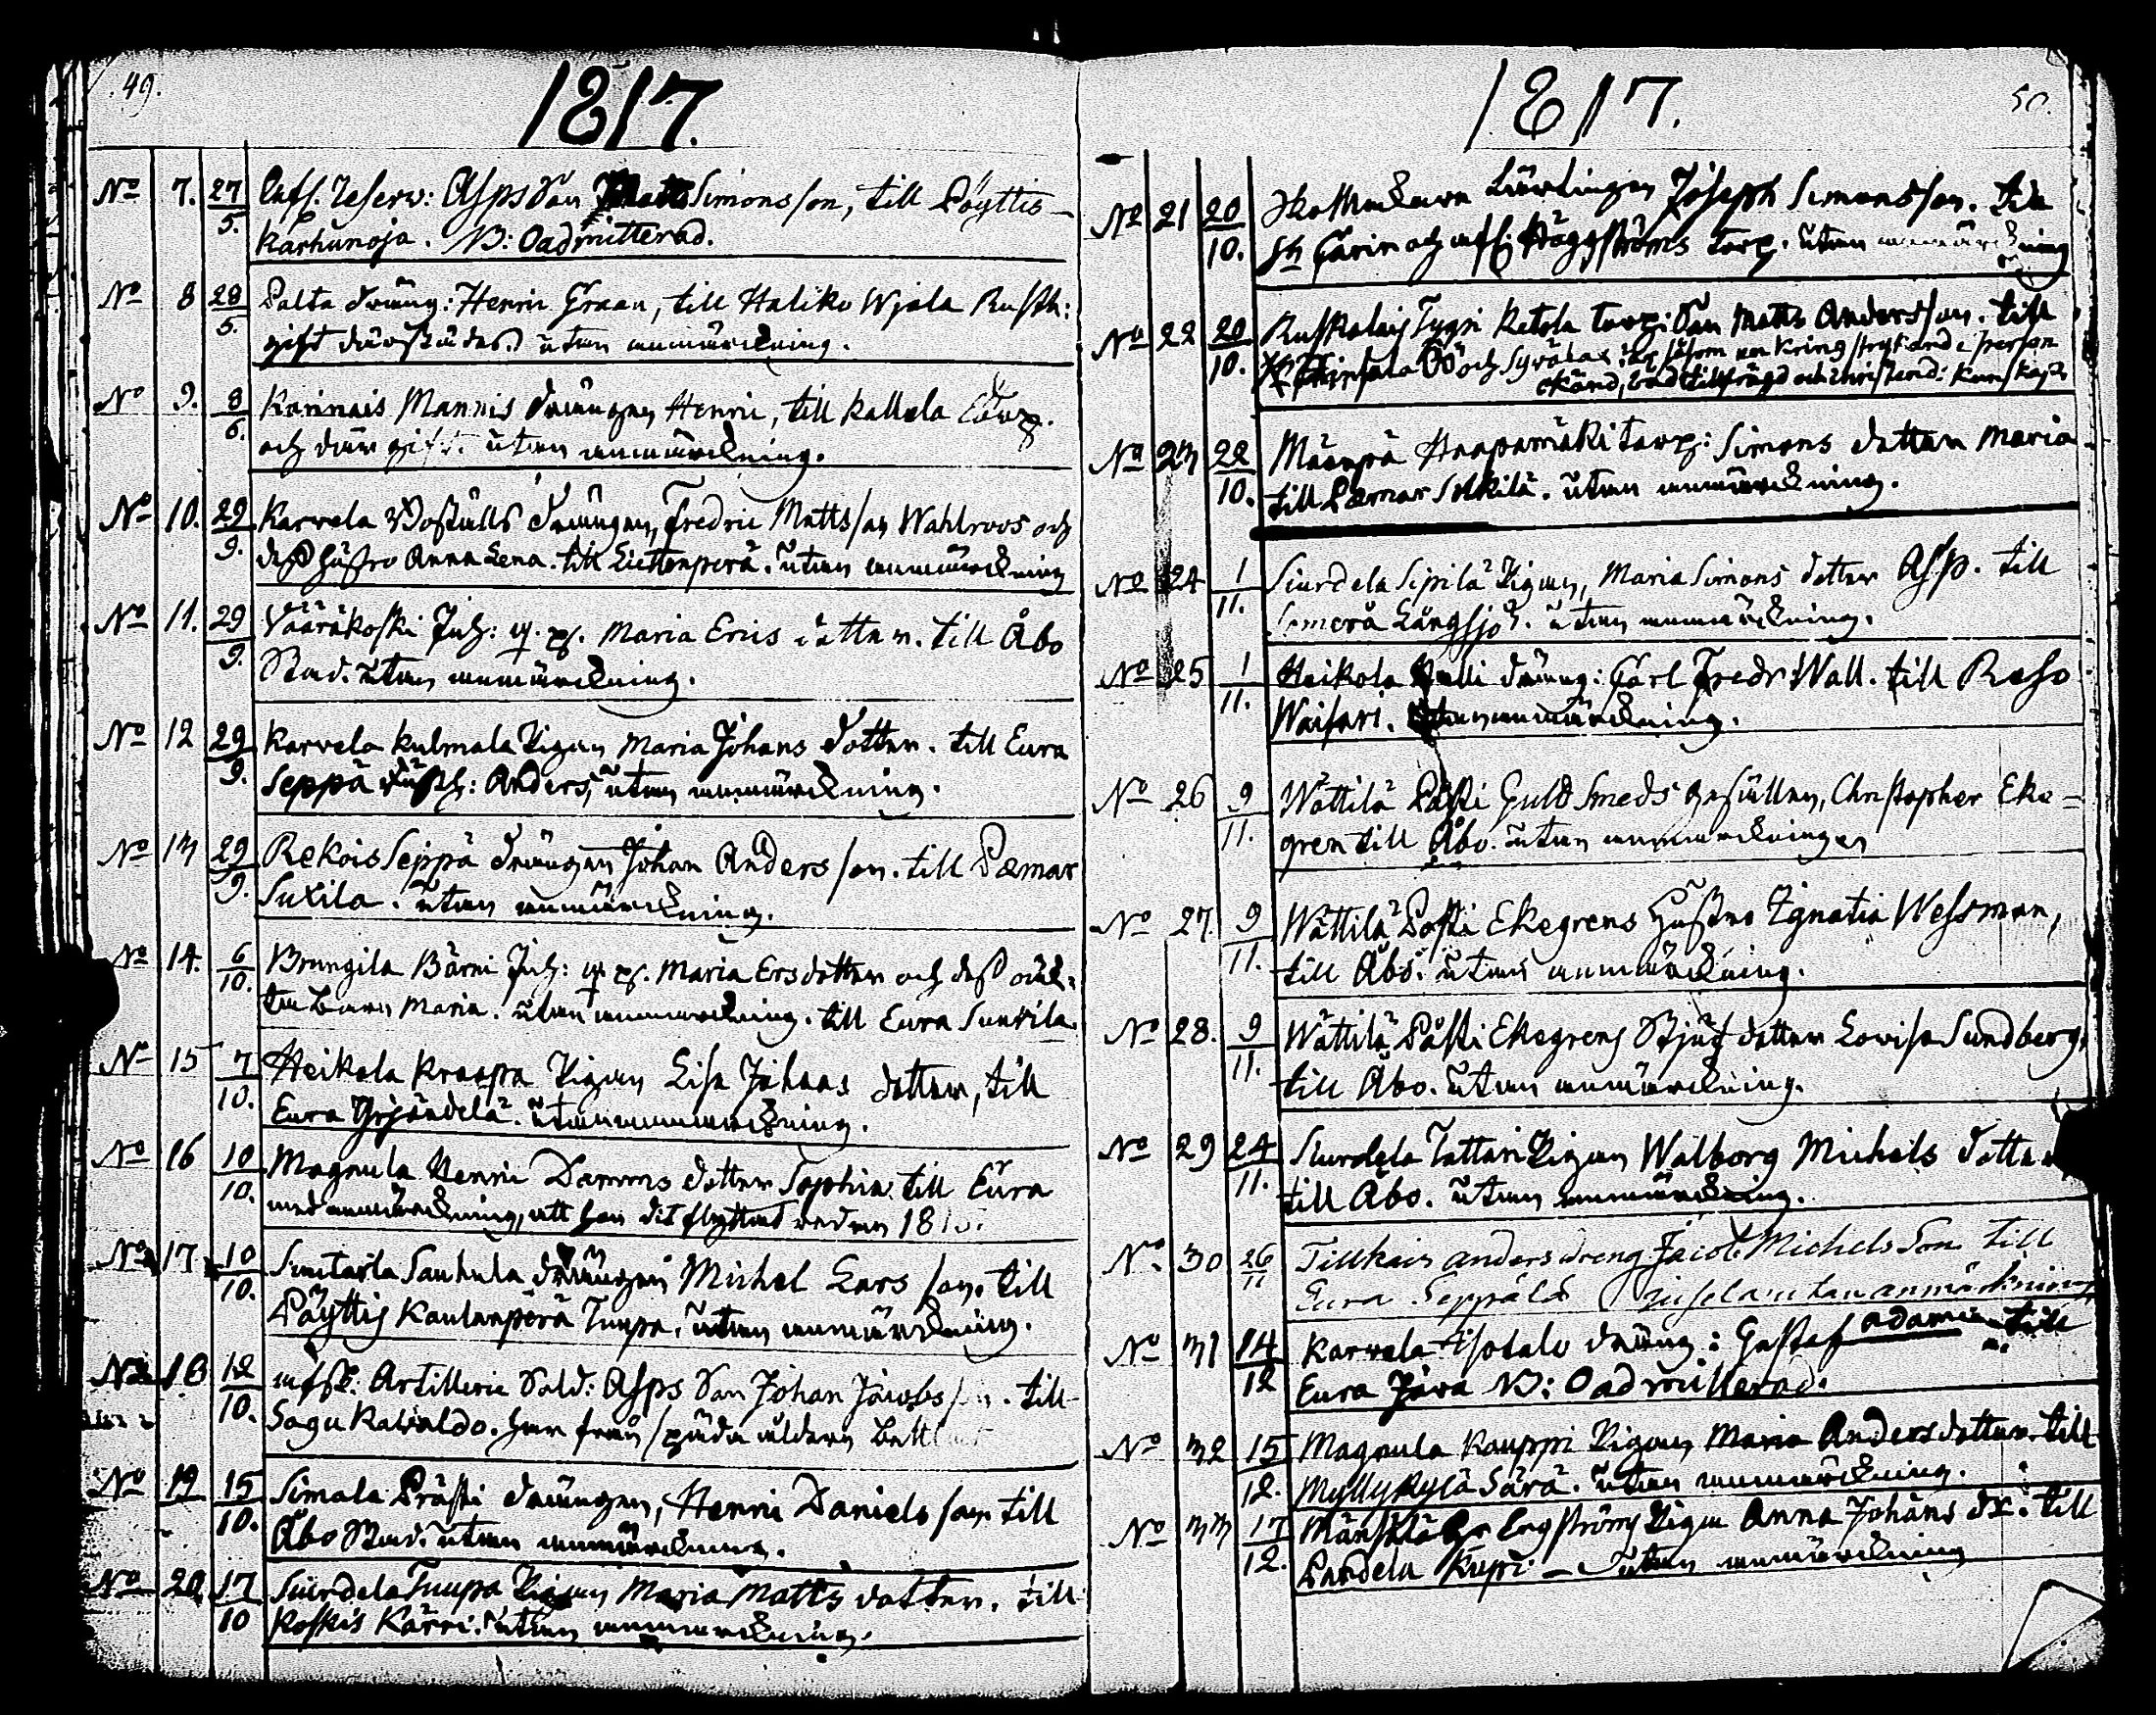 49.
1817.
No 7. 27/5. Afs. Reserv: Asps Son Matts Simonsson, till Pöyttis
Karhunoja. NB: Oadmitterad.
No 8 28/5. Palta dräng: Henric Graan, till Haliko Wjala Rusth:
gift därstädes. utan anmärckning.
No 9. 8/6. Karinais Mannis drängen Henric, till Kallela
och där gift. utan anmärckning.
No 10. 29/9. Karvela Boställs drängen, Fredric Mattsson Wahlroos och
dess Hustro Anna Lena. till Liettenperä. utan anmärckning
No 11. 29/9. Vääräkoski Inh: q. ps. Maria Erics dotter. till Åbo
Stad. utan anmärckning.
No 12 29/9. Karvela Kulmala Pigan Maria Johans dotter. till Eura
Seppä Anders, utan anmärckning.
No 13 29/9. Rekois Seppä drängen Johan Andersson. till Pemar
Suxila. utan anmärckning.
No 14. 6/10. Brungila Bärni Inh: q. ps. Maria Ersdotter och dess oäck-
ta Barn Maria. utan anmärckning. till Eura Sunkila.
No 15 7/10. Heikola Kraapa Pigan Lisa Johans dotter, till
Eura Yrjändelä. utan anmärckning.
No 16 10/10. Magnula Henric Damms dotter Sophia till Eura
med anmärckning, att hon dit flyttat redan 1815.
No 17 10/10. Simtarla Sauhula drängen Michel Larsson. till
Pöyttis Kaulanperä Tuupa. utan anmärckning.
No 18 12/10. afsk. Artillerie Sold: Asps Son Johan Jacobsson. till
Sagu Kavaldo. har från späda åldern
No 19 15/10. Simala Prästi drängen, Henric Danielsson till
Åbo Stad. utan anmärckning.
No 20 17/10 Siurdela Tuupa Pigan Maria Matts dotter. till
Koskis Kärri. utan anmärckning.
1817.
50.
No 21 20/10. Skomakare Lärlingen Joseph Simonsson. till
St Carin och afs: Häggströms torp. utan anmärckning
No 22 20/10. Ruskalais Typpi Ketola torp: Son Matts Andersson. till
och Syvälax: är såsom en Kringstrykande person
känd, Kunskap.
No 23 22/10. Mäenpä Haapamäki torp: Simons dotter Maria
till Pemar Solkilä. utan anmärckning.
No 24 1/11. Siurdela Sipilä Pigan, Maria Simons dotter Asp. till
Somerå Långsjö. utan anmärckning.
No 25 1/11. Heikola dräng: Carl Fredr: Wall. till Reso
Waisari. utan anmärckning.
No 26 9/11. Wättilä Påsti Guld Smeds gesällen, Christopher Eke-
gren till Åbo. utan anmärckningen
No 27. 9/11. Wättilä Påsti Ekegrens Hustro Ignatia Wessman,
till Åbo. utan anmärckning.
No 28. 9/11. Wättilä Påsti Ekegrens Stjuf dotter Lovisa Sundberg,
till Åbo. utan anmärckning.
No 29 24/11. Siurdela Tattari Pigan Walborg Michels dotter
till Åbo. utan anmärckning.
No 30 26/11 Tillkais anders dreng Jacob Michels Son till
Eura Seppälä utan anmärckning
No 31 14/12 Karvela Isotalo dräng: Gustaf adamis till
Eura Jåva NB: Oadmitterad.
No 32 15/12. Magnula Kauppi Pigan Maria Andersdotter till
Myllykylä Särä. utan anmärckning.
No 33 17/12. Mänskilä Engströms Pigan Anna Johans dr: till
Pardela Kupi - utan anmärckning